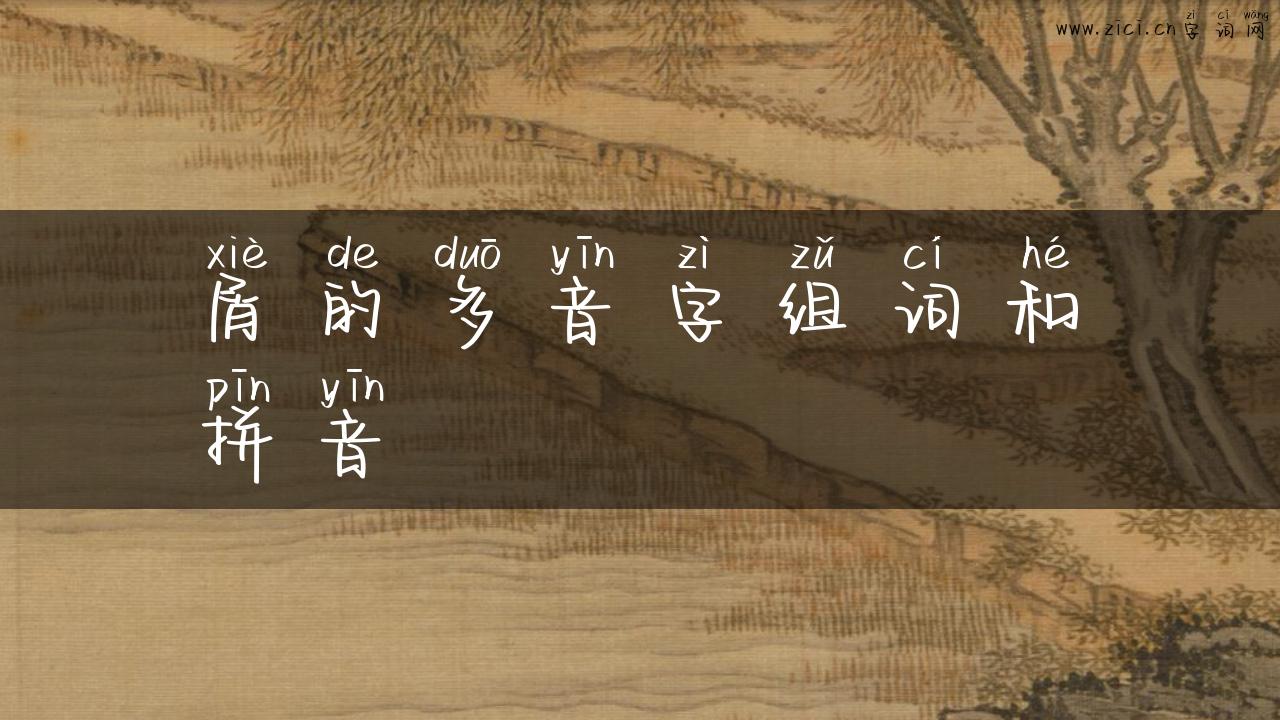 zì cí wǎng
www.zici.cn字词网
xiè de duō yīn zì zǔ cí hé
屑的多音字组词和
pīn yīn
拼音